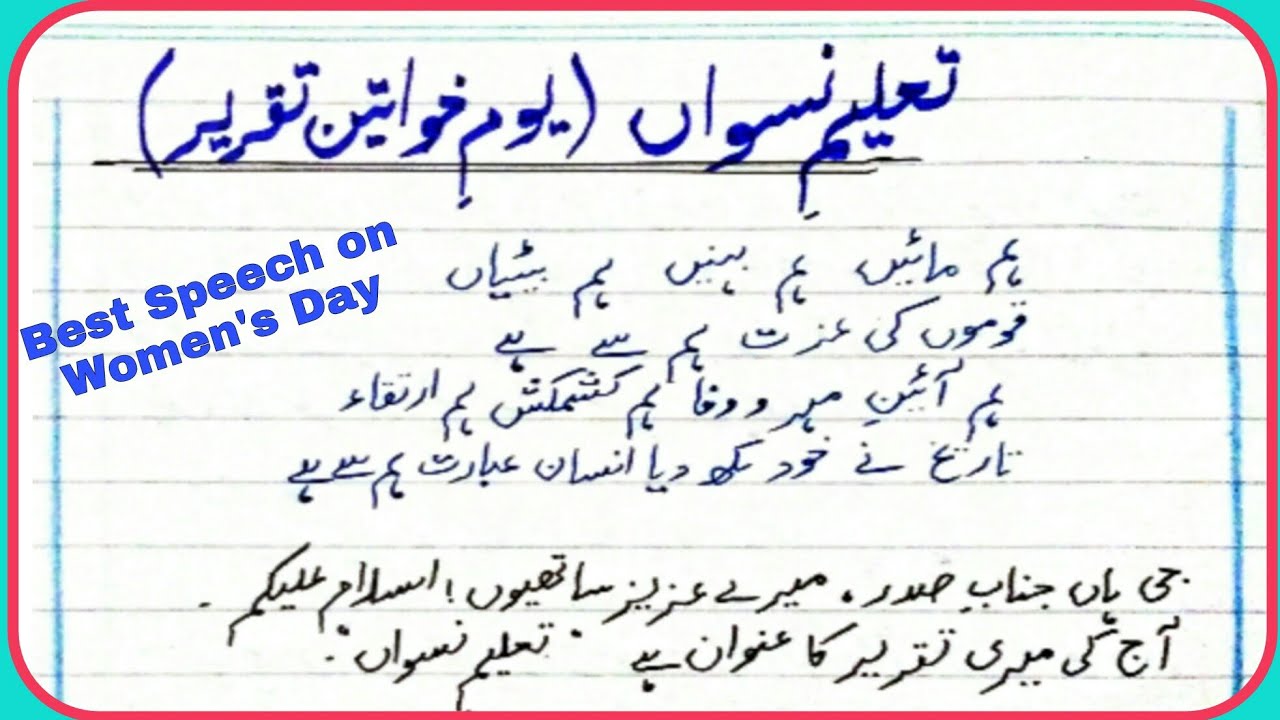 تعلیمِ نسواں (یومِ خواتین تقریر)
Best Speech on
Women's Day
ہم مائیں ہم بہنیں ہم بیٹیاں
قوموں کی عزت ہم سے ہے
ہم آئینِ مہر و وفا ہم کشمکش ہم ارتقاء
تاریخ نے خود لکھ دیا انسان عبارت ہم سے ہے
جی ہاں جنابِ صدر، میرے عزیز ساتھیوں! اسلام علیکم.
آج کی میری تقریر کا عنوان ہے "تعلیمِ نسواں".